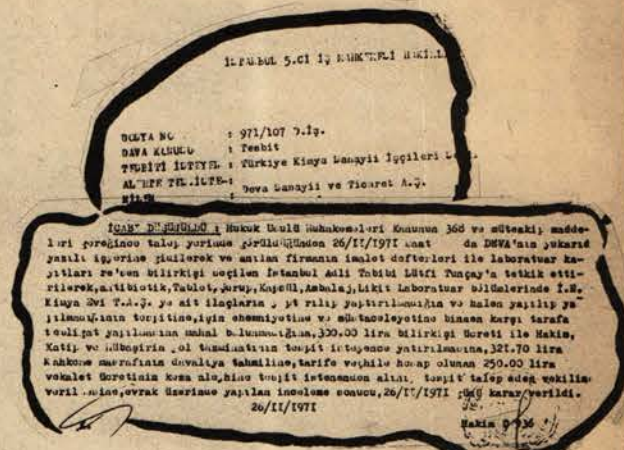 İSTANBUL 5.Cİ İŞ MAHKEMESİ
DOSYA NO : 971/107 D.İş.
DAVA KONUSU : Tesbit
TESBİTİ İSTEYEN : Türkiye Kimya Sanayii İşçileri
ALEYHTE TES.İSTE- : Deva Sanayii ve Ticaret A.Ş.
NİLEN
İCABI DÜŞÜNÜLDÜ : Hukuk Usulü Muhakemeleri Kanunun 368 ve müteakip madde-
leri gereğince talep yerinde görüldüğünden 26/II/1971 saat da DEVA'nın yukarıd
yazılı işyerine gidilerek ve anılan firmanın imalet defterleri ile laboratuar ka-
yıtları re'sen bilirkişi seçilen İstanbul Adli Tabibi Lütfi Tunçay'a tetkik etti-
rilerek,antibiotik,Tablet,Şurup,Kapsül,Ambalaj,Likit Laboratuar bölümlerinde İ.E.
Kimya Evi T.A.Ş. ye ait ilaçların yaptırılmadığın ve halen yapılıp ya-
pılmadığının tespitine,işin ehemmiyetine ve müstaceliyetine binaen karşı tarafa
tebligat yapılmasına mahal bulunmadığına,300.00 lira bilirkişi ücreti ile Hakim,
Katip ve Mübaşirin yol tazminatının tespit isteyence yatırılmasına,321.70 lira
Mahkeme masrafının davalıya tahmiline,tarife veçhile hesap olunan 250.00 lira
vekalet ücretinin tespit istenenden alınıp tespit talep eden vekiline
verilmesine,evrak üzerinde yapılan inceleme sonucu,26/II/1971 günü karar verildi.
26/II/1971
Hakim